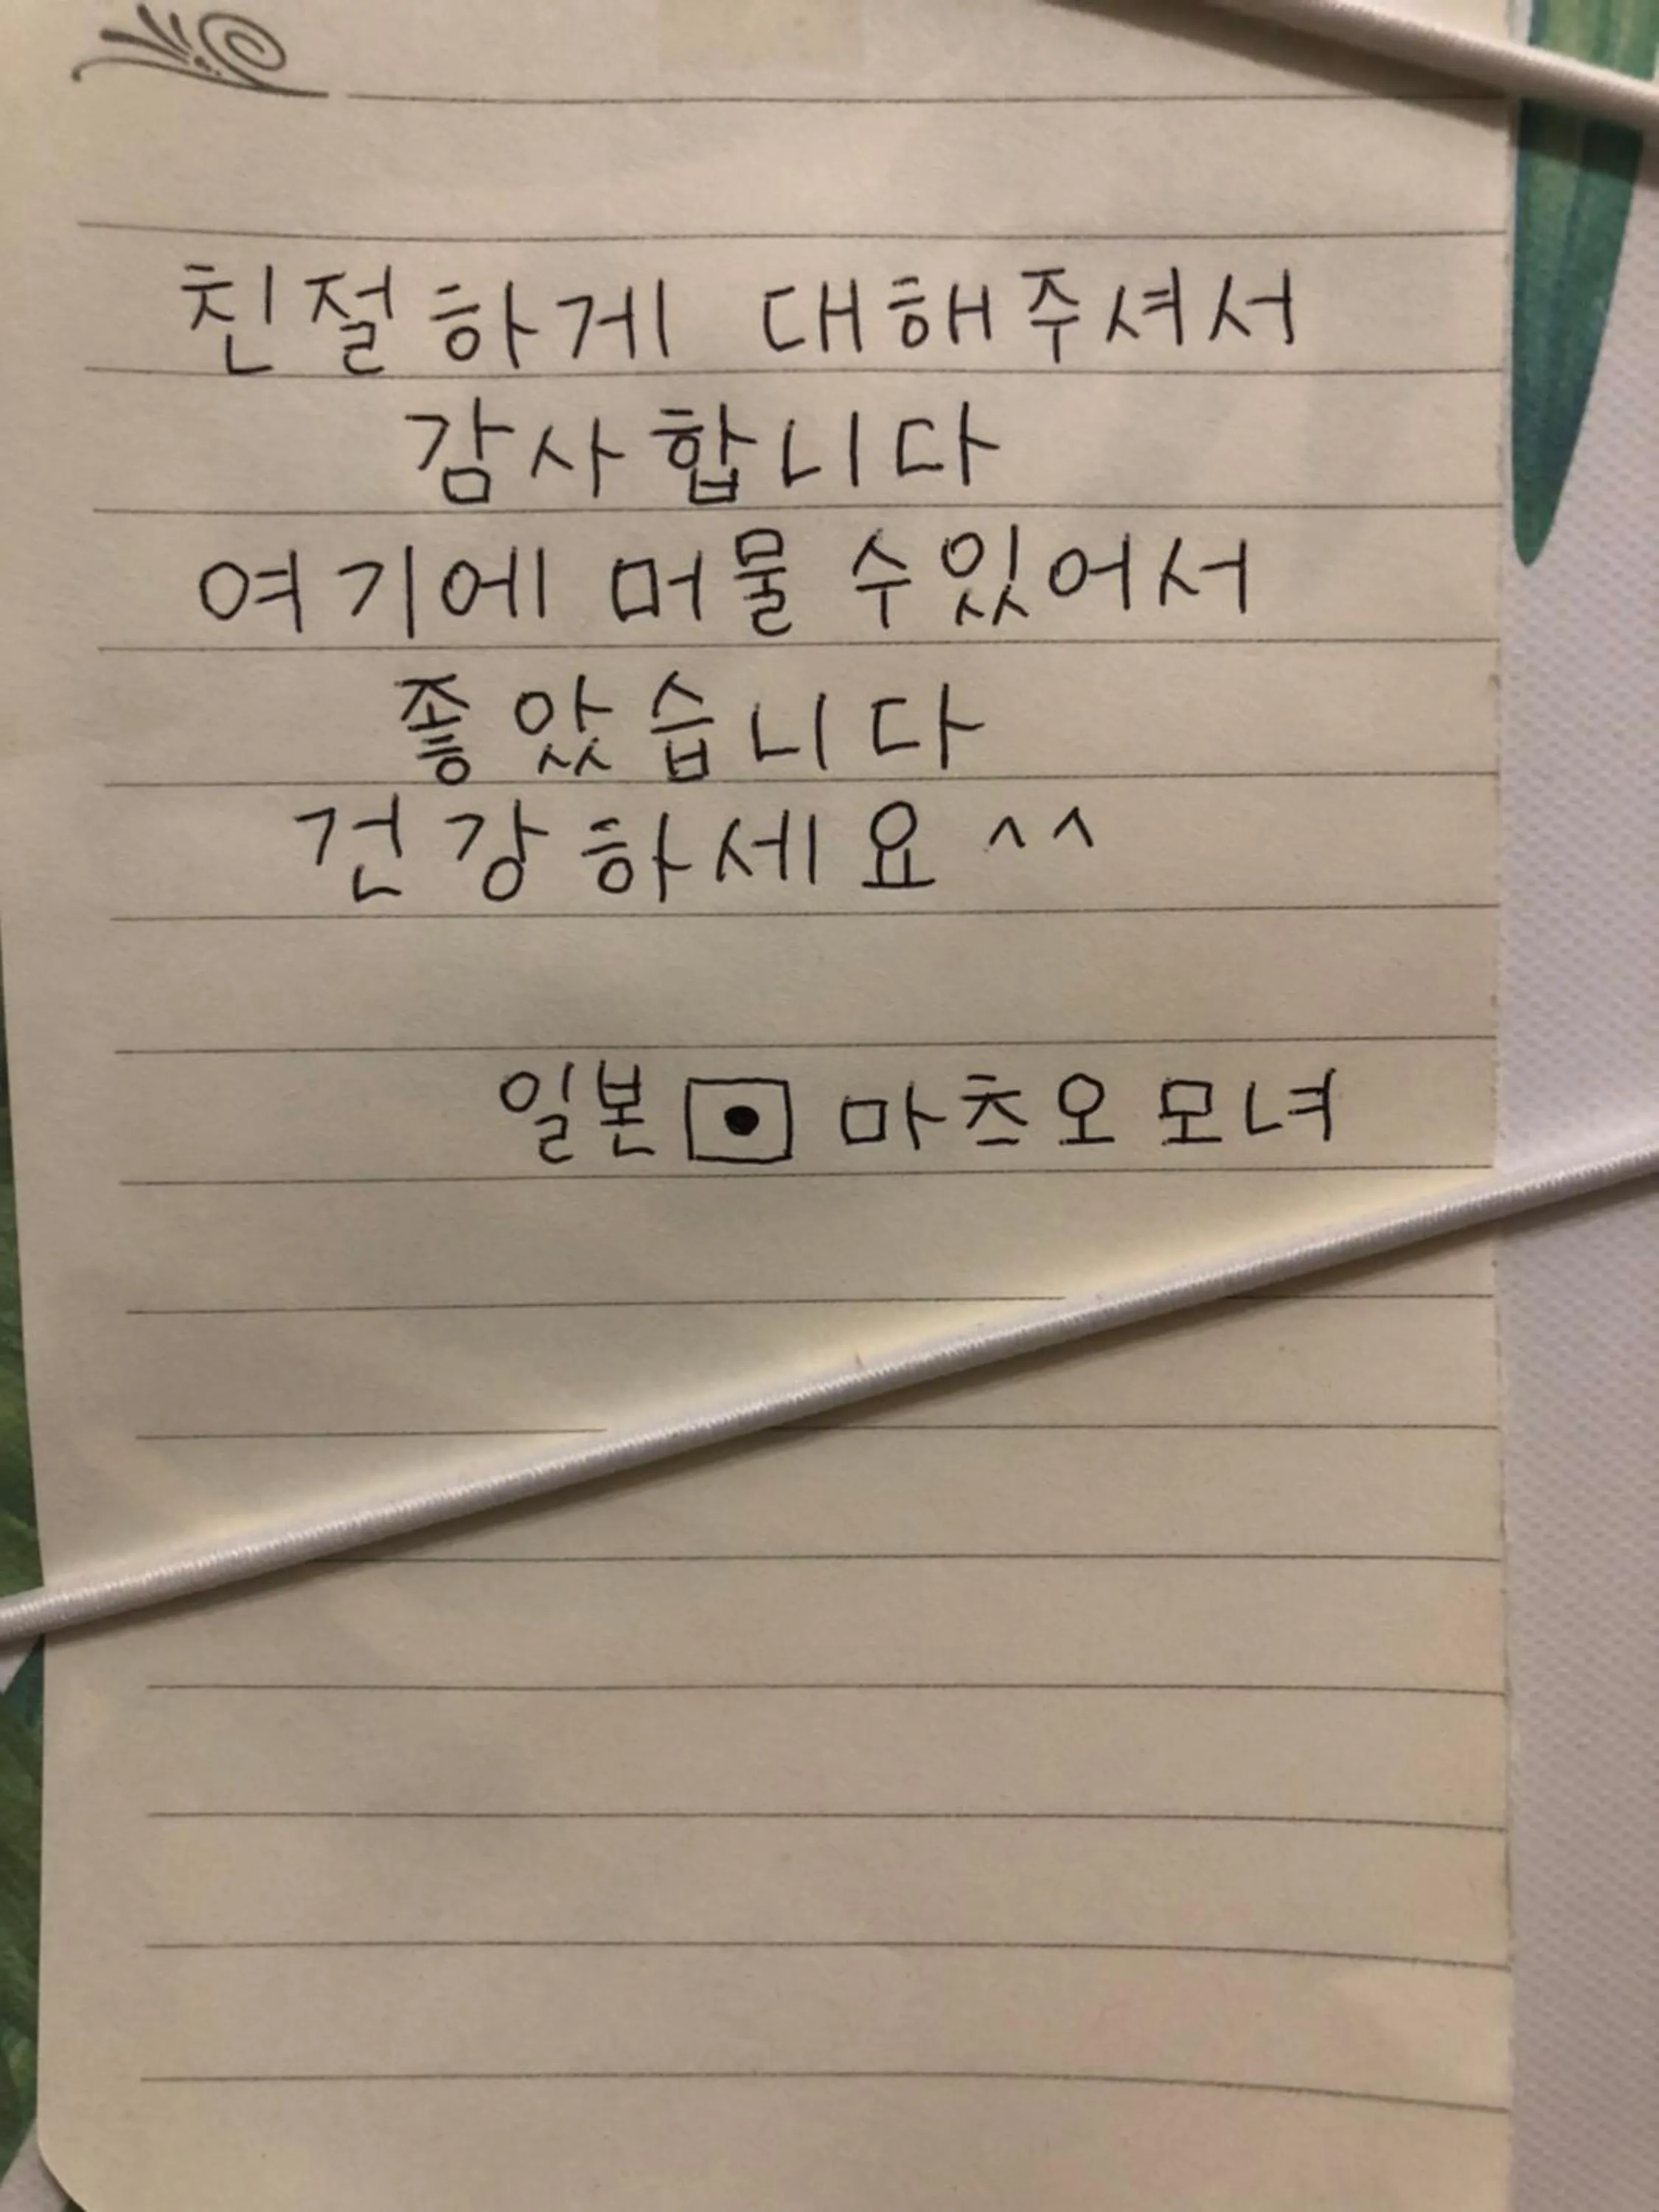 친절하게 대해주셔서
감사합니다
여기에 머물 수있어서
좋았습니다
건강하세요 ^^
일본 마츠오 모녀